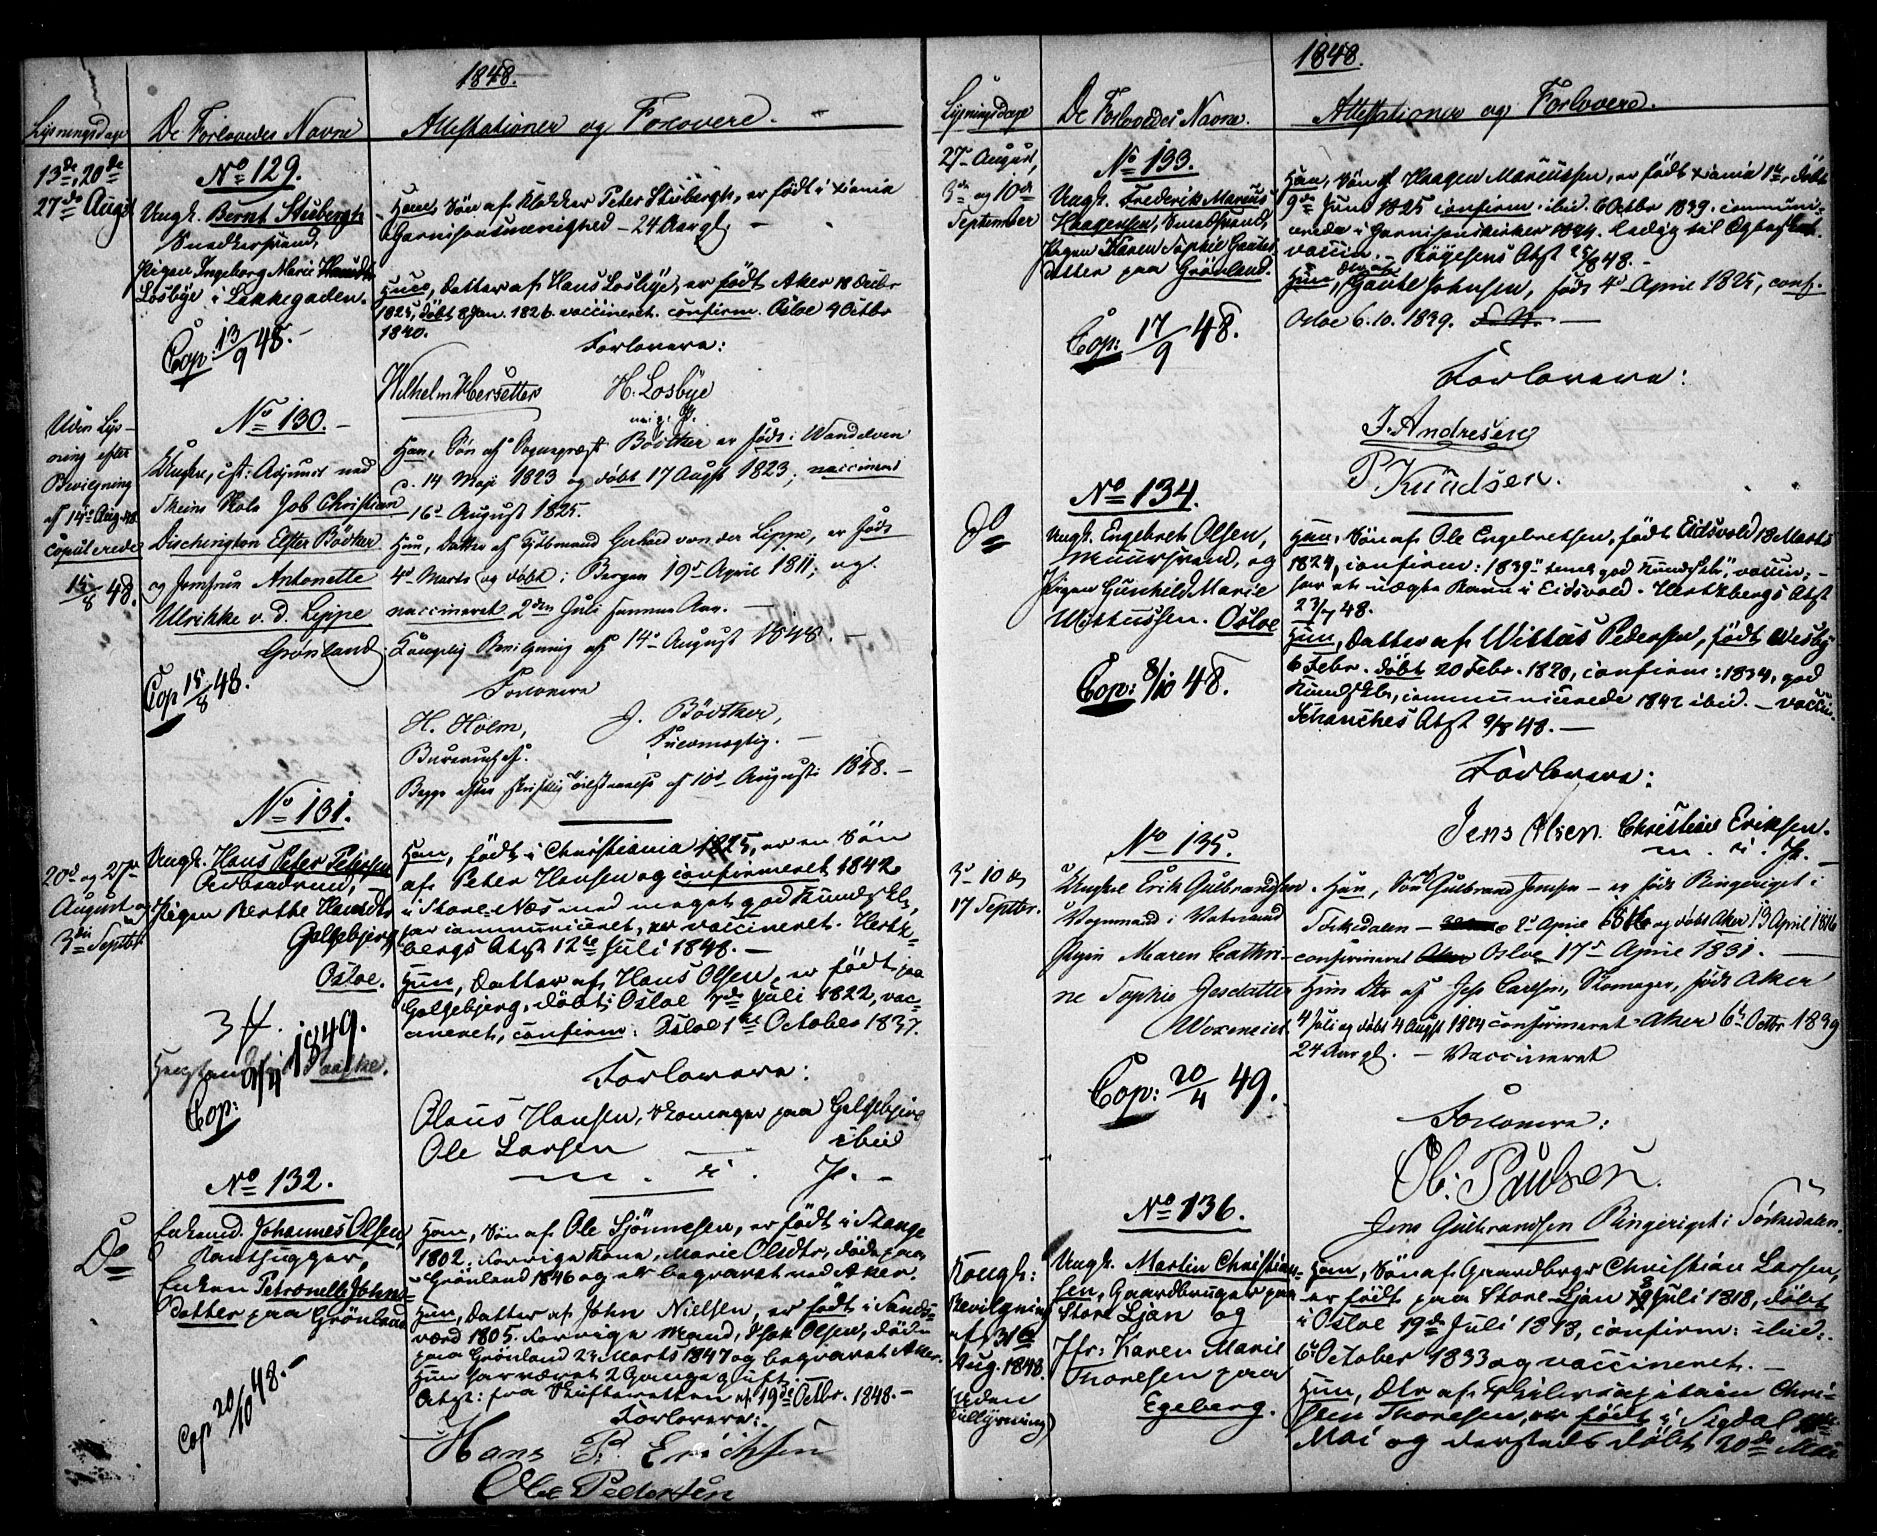 1848.
Lysningsdage
De Forlovedes Navne
Attestationer og Forlovere.
13de, 20de
27de August
No 129.
Ungk. Bernt Stubergh
Snedkersvend,
Pigen Ingeborg Marie Hansdtr
Losbye i Lakkegaden.
Cop: 13/9 48.
Han, Søn af Klokker Peter Stubergh, er født i Xiania
Garnisonsmenighed - 24 Aar gl. -
Hun, Datter af Hans Losbye, er født Aker 18 Decbr
1825, døbt 8 Jan. 1826. vaccineret. confirm. Osloe 4 Octbr
1840.
Forlovere:
Wilhelm Hersetter H. Losbye
m. i. P.
Uden Lys-
ning efter
Bevilgning
af 14de Aug. 48.
copulerede
15/8 48.
No 130. -
Ungkr, cst: Adjunct ved
Skiens Skole Job Christian
Dischington Elster Bödtker
og Jomfrue Antonette
Ulrikke v. d. Lippe
Grønland.
Cop 15/8 48.
Han, Søn af Sognepræst Bödtker er født i
c. 14 Maji 1823 og døbt 17 August 1823; vaccineret
16de August 1825.
Hun, Datter af Gerhard von der Lippe, er født
4de Marts og døbt i Bergen 19de April 1811; og
vaccineret 2den Juli samme Aar. -
Kongelig Bevilgning af 14de August 1848. -
Forlovere
H. Holm, J. Bödtker,
Bureauchef.
Begge efter skriftlig af 10de August 1848. -
20de og 27de
August og
3die Septbr
No 131.
Ungk. Hans Peter Petersen
Arbeidsmd,
Pigen Berthe Hansdtr
Galgebjerg
Osloe.
3 ₰. 1849.
Cop: 9/4
Han, født i Christiania 1825, er en Søn
af Peter Hansen og confirmeret 1842
i Store-Næs med meget god Kundskb,
har communiceret, er vaccineret. Hertz-
bergs Atst 12te Juli 1848. -
Hun, Datter af Hans Olsen, er født paa
Galgebjerg, døbt i Osloe 7de Juli 1822, vac-
cineret, confirm: Osloe 1ste October 1837.
Forlovere:
Olaus Hansen, Skomager paa Galgebjerg
Ole Larsen ibid
m. i. P. -
Do
No 132.
Enkemd. Johannes Olsen,
Enken Petronelle Johns-
datter paa Grønland
Cop 20/10 48. -
Han, Søn af Ole Sjönnesen, er født i Stange
1802; forrige Kone, Marie Olsdtr, døde paa
Grønland 1846 og er begravet ved Aker.
Hun, Datter af John Nielsen, er født i Sands-
værd 1805. forrige Mand, Isak Olsen, døde
paa Grønland 23 Marts 1847 og begravet Aker.
Hun har været 2 Gange gift. -
Atst: fra Skifteretten af 19de Octbr. 1848 -
Forlovere:
Hans P. Erichsen
Ole Pedersen
1848.
Lysningsdage
De Forlovedes Navne.
Attestationer og Forlovere.
27de August,
3die og 10de
September
No 133.
Ungk. Frederik Marcus
Haagensen, Smedsvend,
Pigen Karen Sophie Gautes-
datter paa Grønland.
Cop: 17/9 48.
Han, Søn af Haagen Marcussen, er født Xiania 1ste, døbt
9de Juni 1825 confirm: ibid. 6 Octbr 1839. commun-
vaccin. - Röyesens Atst 25/8 48. -
Hun, Dtr af Gaute Johnsen, født 4de April 1825, conf.
Osloe 6. 10. 1839.
Forlovere:
J. Andresen
P. Knudsen.
Do
No 134.
Ungk. Engebret Olsen,
Muursvend, og
Pigen Gunhild Marie
Wittussen. Osloe
Cop: 8/10 48.
Han, Søn af Ole Engebretsen, født Eidsvold 18 Marts
1824, confirm: 1839 god Kundskb, vaccin; -
har et uægte Barn i Eidsvold. - Hertzbergs Atst
23/7 48.
Hun, Datter af Wittus Pedersen, født Wesby
6 Febr. døbt 20 Febr. 1820, confirm: 1834, god
Kundskb, communicerede 1842 ibid. - vaccin.
Schanches Atst 9/8 48. -
Forlovere:
Jens Olsen. Christian Eriksen.
m. i. P. -
3de 10de
17 Septbr.
No 135.
Ungkrl Erik Gulbrandsen
Vognmand i Vaterland
Pigen Maren Cathri-
ne Sophie Jesdatter
Woxeneiet
Cop: 20/4 49.
Han, Søn af Gulbrand Jensen - er født Ringeriget i
Sørkedalen - 2de April 1816 og døbt Aker 13 April 1816
confirmeret Osloe 17de April 1831. -
Hun Dtr af Jess Carlsen, Skomager, født Aker
4 Juli og døbt 4 August 1824 confirmeret Aker 6te Octbr 1839
24 Aar gl. - Vaccineret
Forlovere:
Ol: Paulsen.
Jens Gulbrandsen Ringeriget i Sørkedalen.
Kongl:
Bevilgning
af 31te
Aug. 1848.
(Uden
Tillysning)
No 136.
Ungk. Martin Christian-
sen, Gaardbruger paa
Store Ljan og
Jfr: Karen Marie
Thoresen paa
Egeberg.
Han, Søn af Gaardbrgr Christian Larsen,
er født paa Store Ljan 8 Juli 1818, døbt
i Osloe 19de Juli 1818, confirm: ibid.
6te October 1833 og vaccineret. -
Hun, Dtr af Skibscapitain Chri-
sten Thoresen, er født i Sigdal
Mai og dersteds døbt 20de Mai